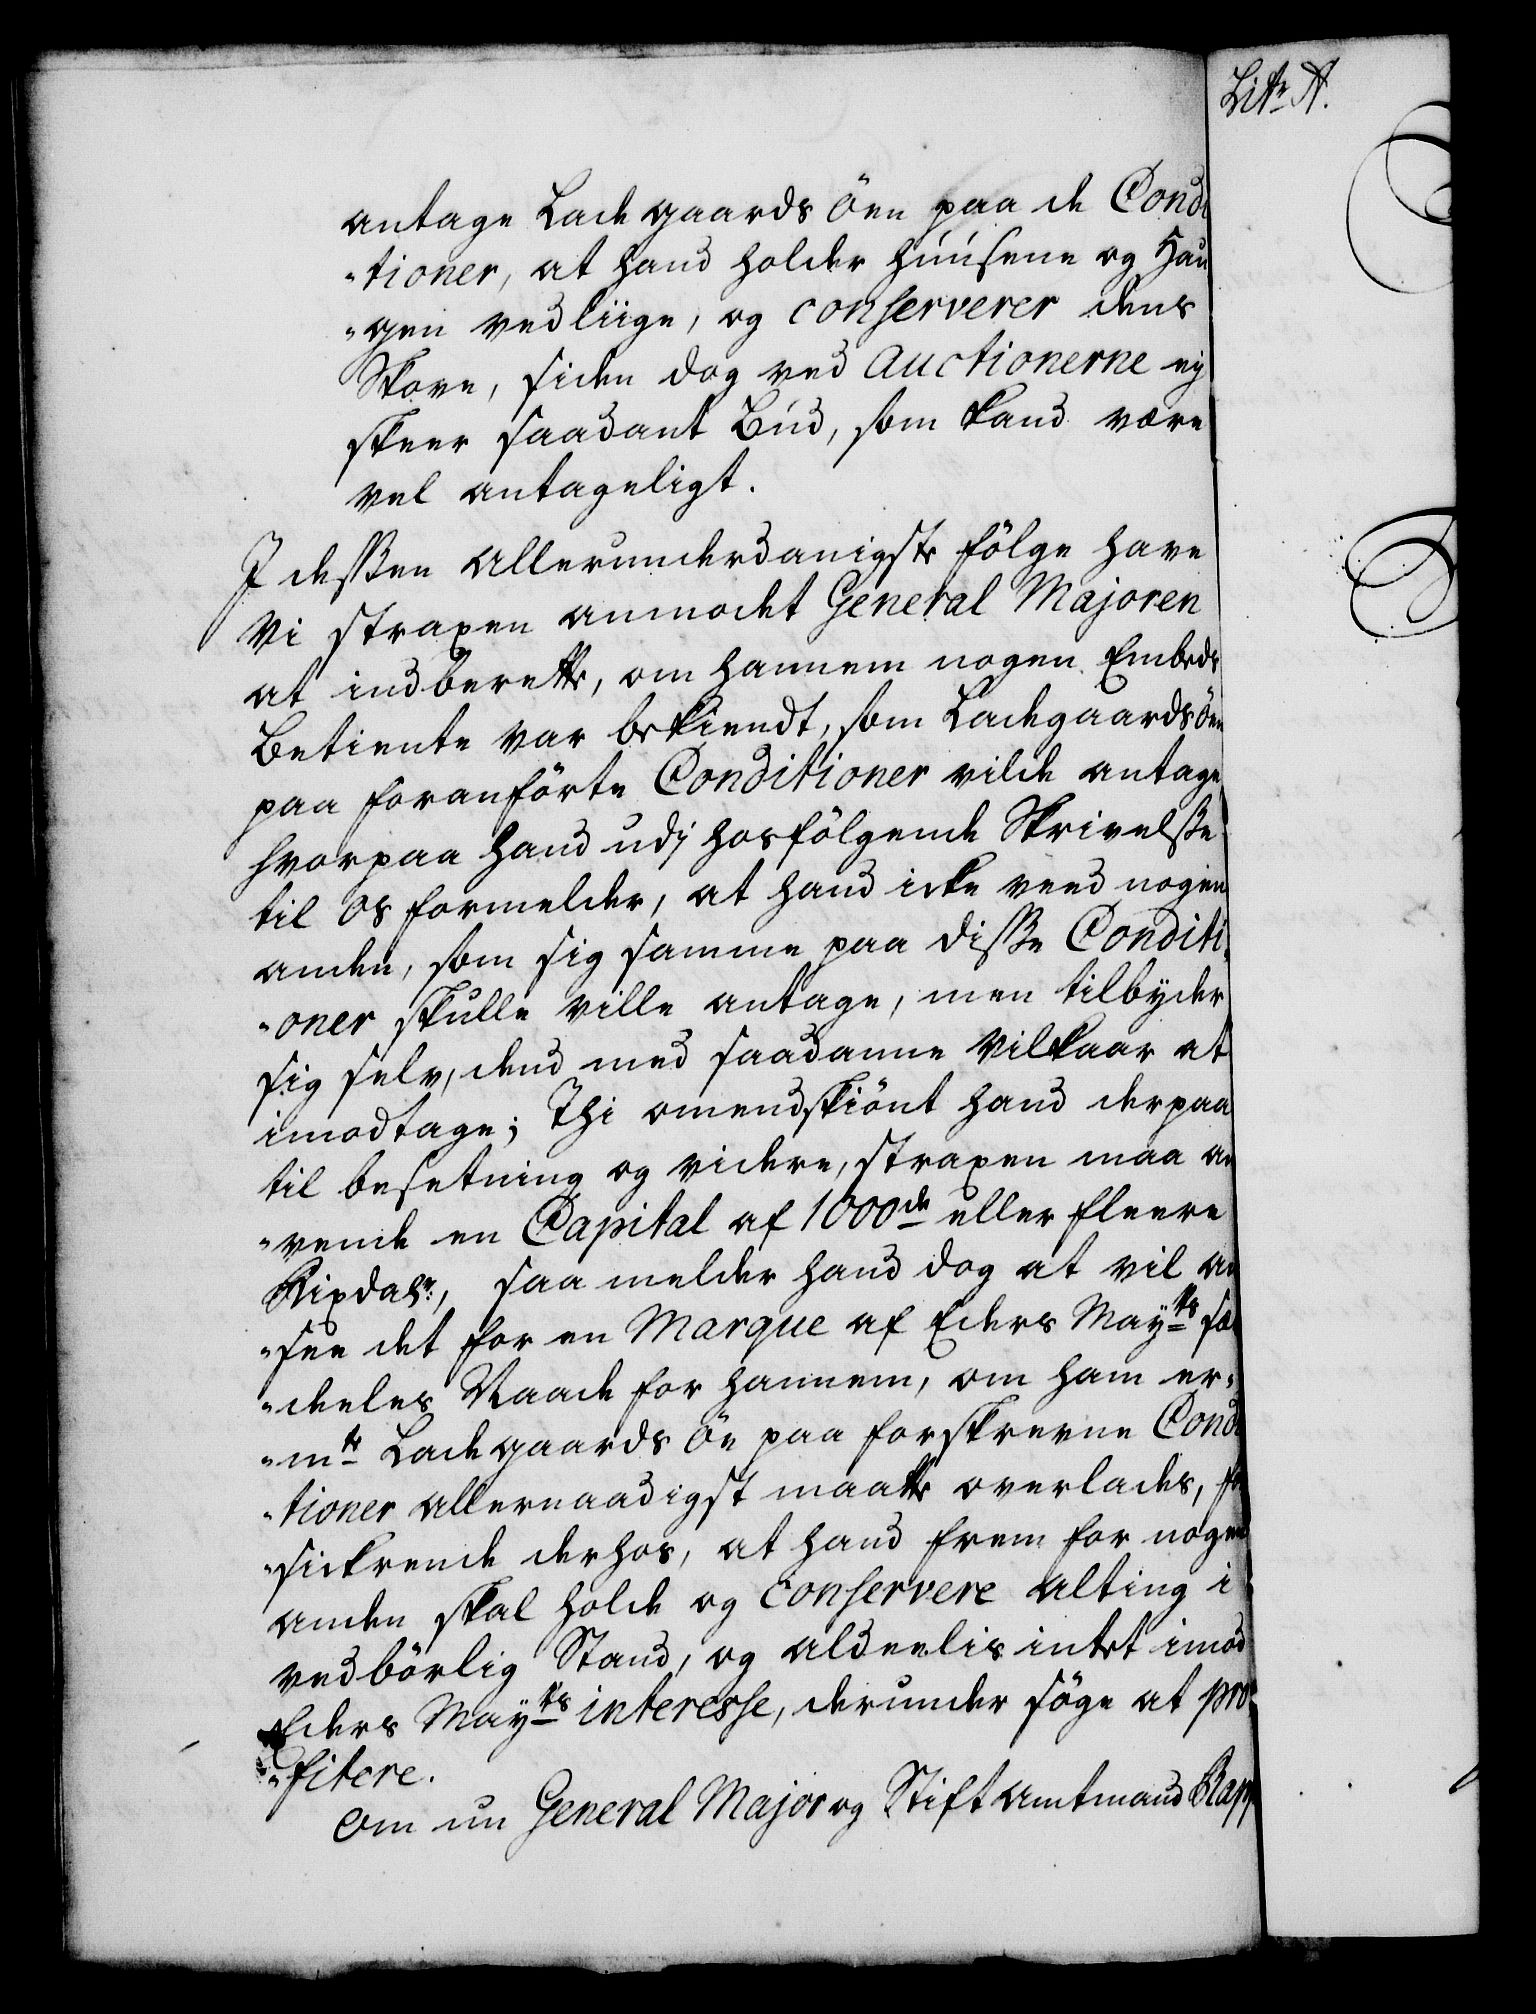 Litr A.
antage Ladegaards Öen paa de Condi
-tioner, at hand holder huusene og Hau
-gen vedliige, og conserverer dens
Skove, siden dog ved Auctionerne ej
skeer saadant Bud, som kand være
vel antageligt.
I dessen allerunderdanigste fölge have
Vi straxen anmodet General Majoren
at indberette, om hannem nogen Embeds
Betiente var bekiendt, som Ladegaardsöen
paa foranförte Conditioner vilde antage
hvorpaa hand udj hosfölgende Skrivelsse
til Os formelder, at hand icke veed nogen
anden, som sig samme paa disse Conditi-
-oner skulle ville antage, men tilbyder
sig selv, dend med saadanne Vilkaar at
imodtage; Thi omendskiönt hand derpaa
til besetning og videre, straxen maa an
-vende en Capital af 1000de eller fleere
Rixdalr:, saa melder hand dog at vil an
-see det for en Marque af Eders Mayts sær
-deeles Naade for hannem, om ham er-
-mte Ladegaards Öe paa forskrevne Condi
-tioner allernaadigst maatte overlades, for
-sickrende derhos, at hand frem for nogen
anden skal holde og conservere alting i
vedbörlig Stand, og aldeelis intet imod
Eders Mayts interesse, derunder söge at pro-
-fitere.
Om nu General Major og Stiftamtmand Rapp